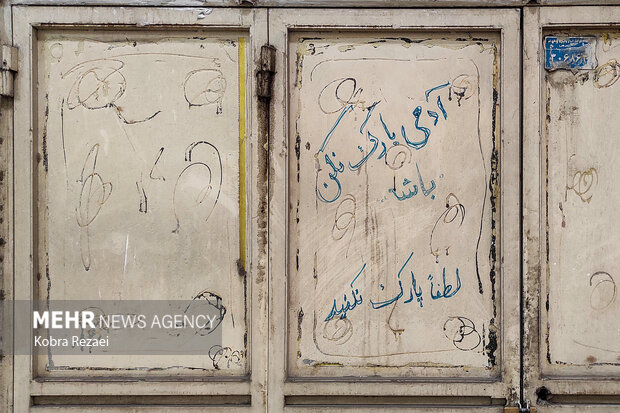 آدمی پارک نکن
باشه
لطفاً پارک نکنید
MEHR NEWS AGENCY
Kobra Rezaei